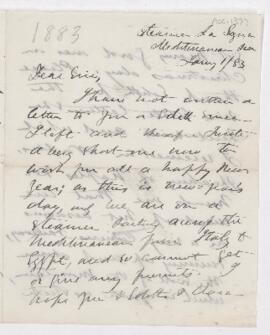 1883
Steamer La Syria
Mediterranean Sea
Jany 1/83
Dear Evie,
I have not written a
letter to you or Edith since
I left and therefore write
a very short one now to
wish you all a happy New
Year; as this is new year's
day, and we are on a
steamer sailing along the
Mediterranean from Italy to
Egypt, and so cannot get
or give any presents. I
hope you & Edith &